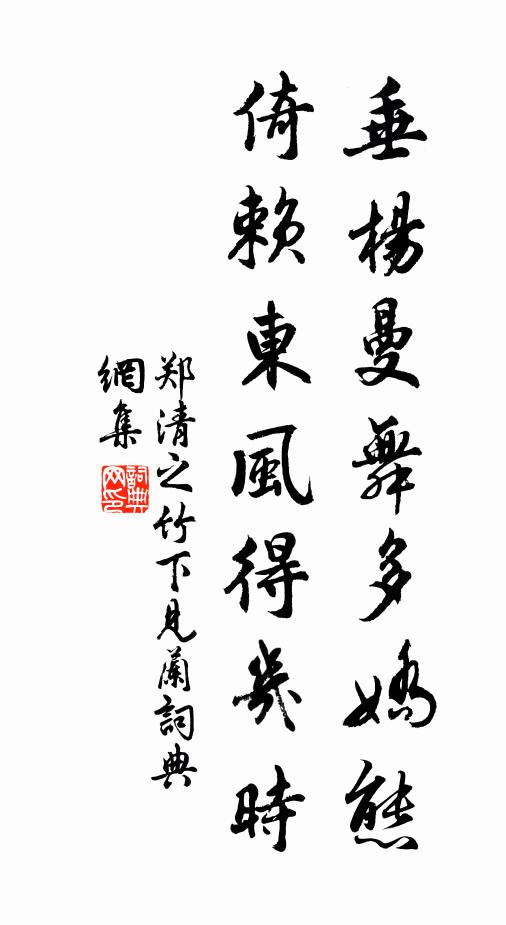 垂楊曼舞多嬌態
倚賴東風得幾時
郑清之竹下見蘭詞典
網集
詞典
网印